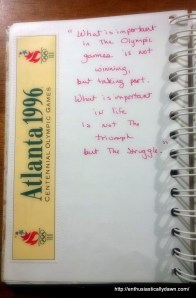 "What is important
in The Olympic
games is not
winning,
but taking part.
What is important
in life
is not The
triumph
but The Struggle."
Atlanta 1996
CENTENNIAL OLYMPIC GAMES
http://enthusiasticallydawn.com/